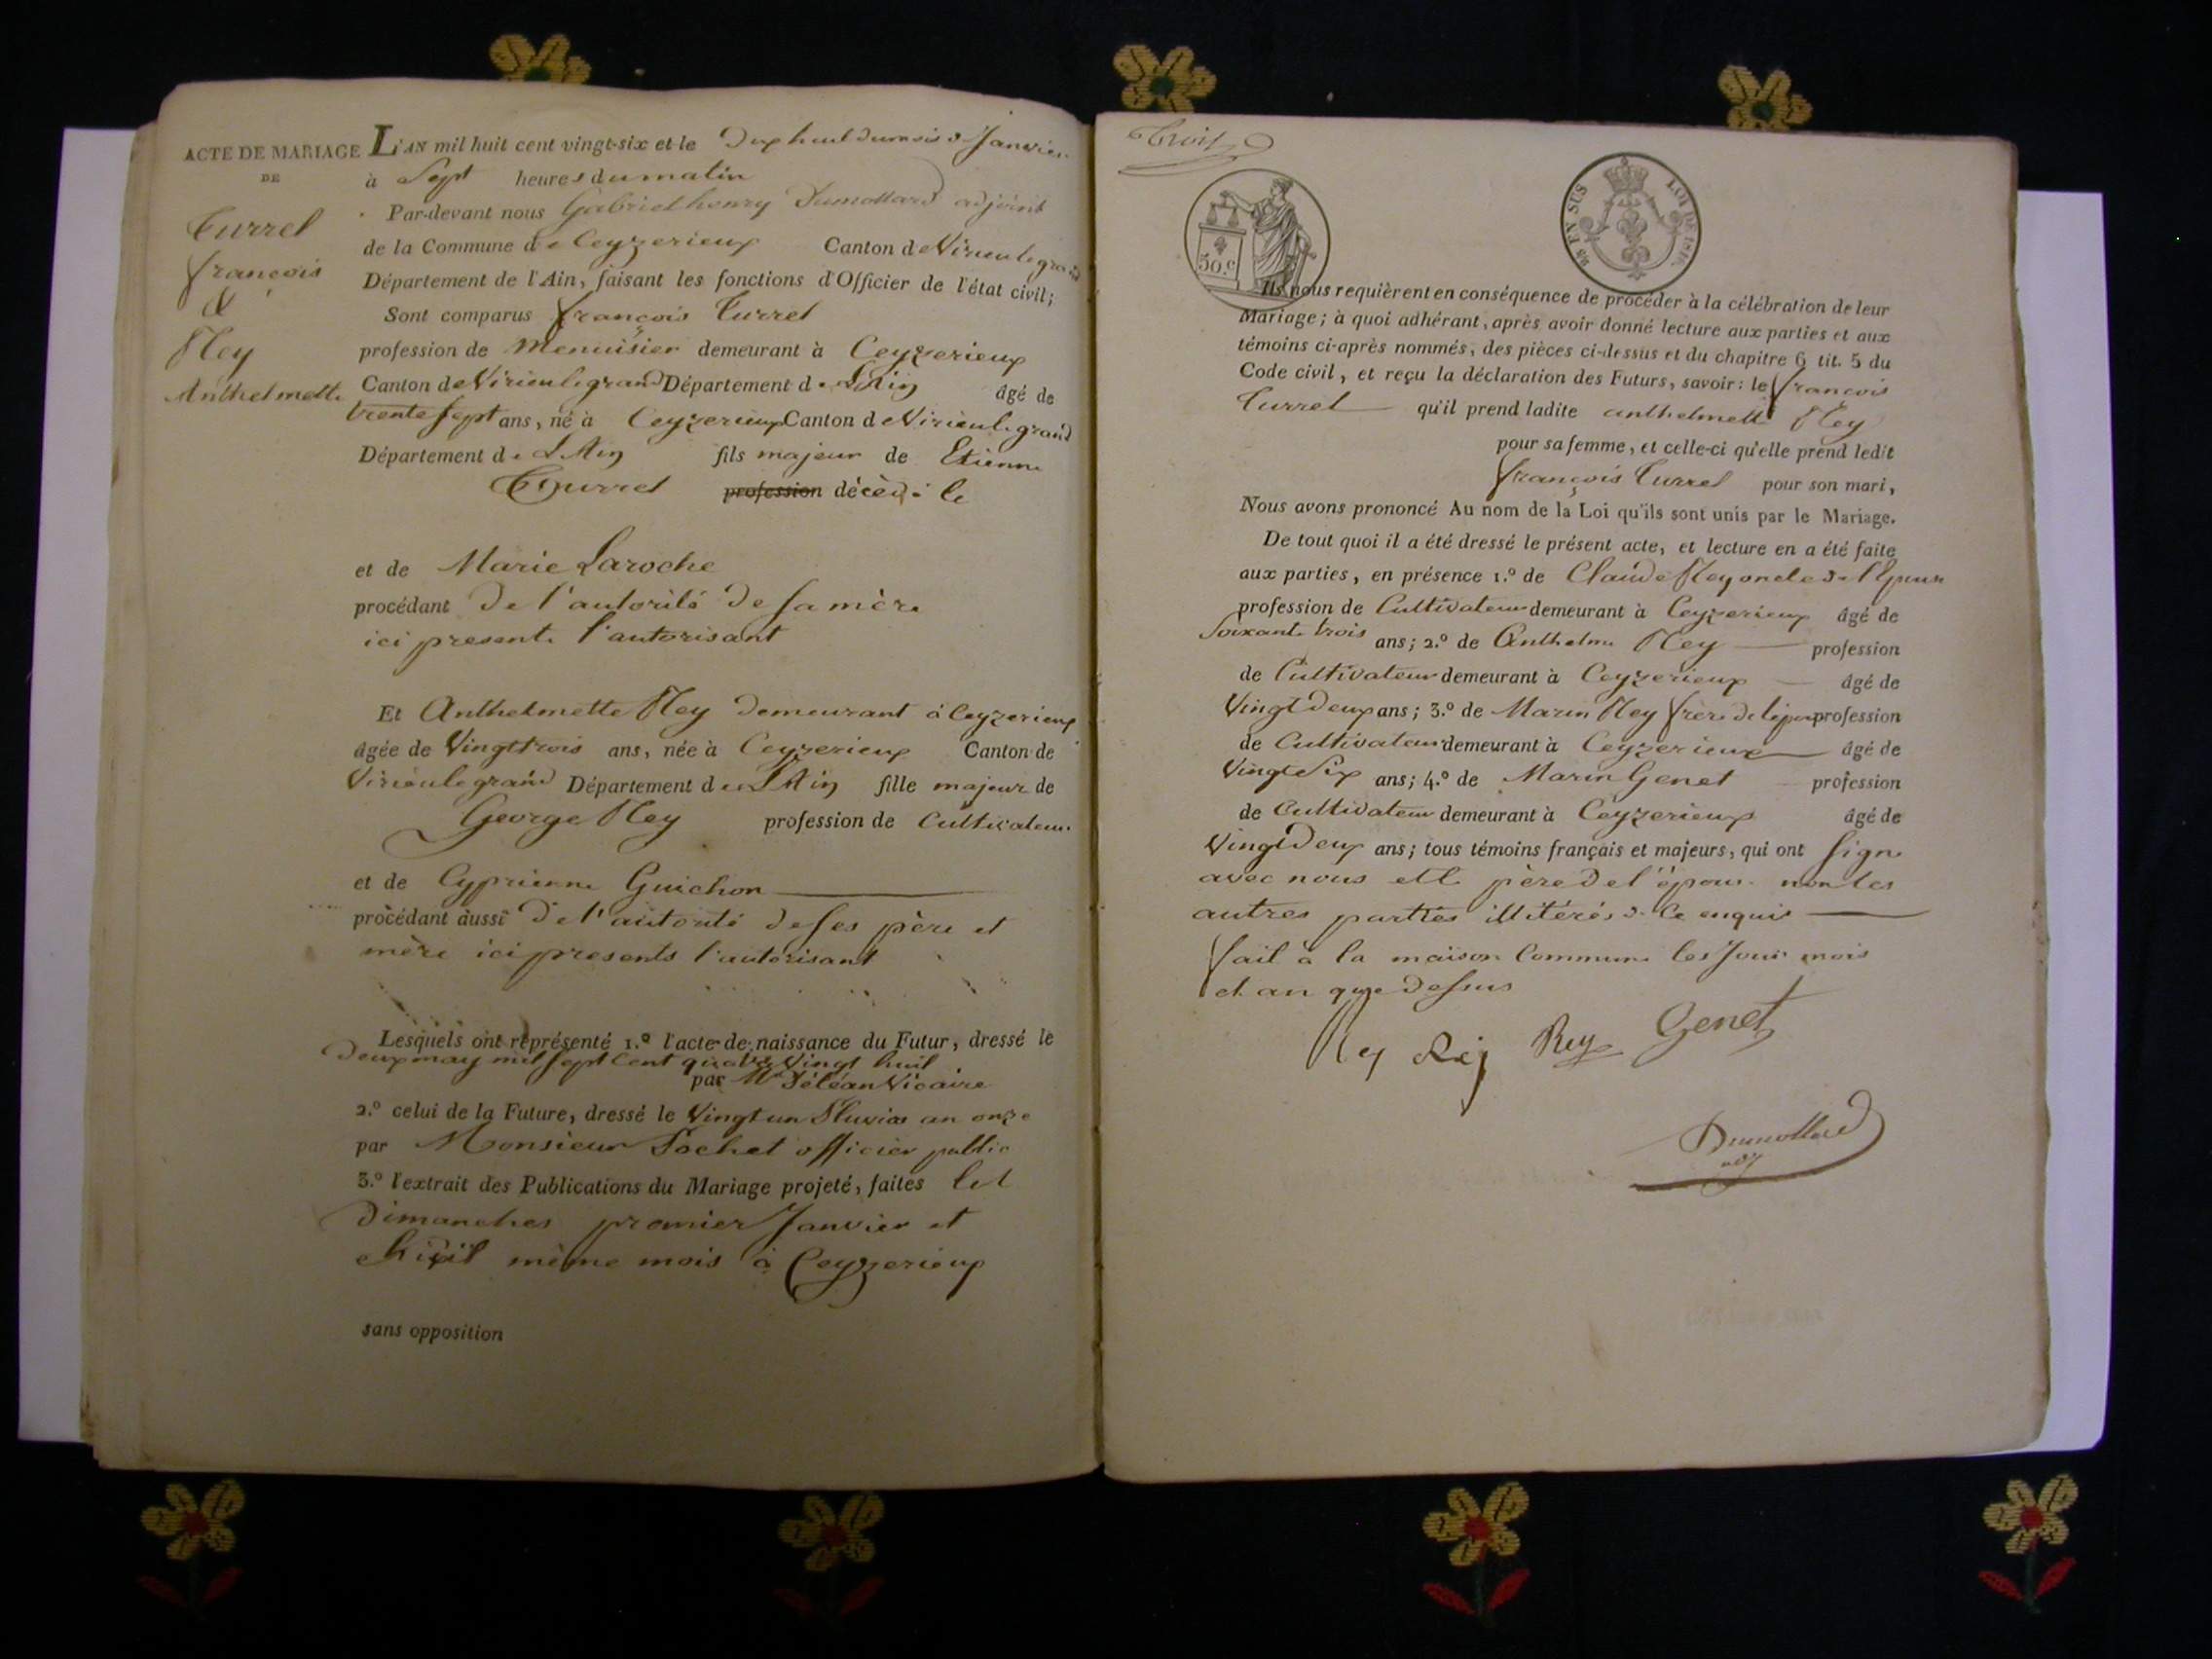 ACTE DE MARIAGE
DE
Turrel
françois
&
Rey
Anthelmette
L'AN mil huit cent vingt-six et le Dix huit du mois de Janvier
à Sept heures du matin
Par-devant nous Gabriel henry Dumollard adjoint
de la Commune de Ceyzerieux Canton de Virieu le grand
Département de l'Ain, faisant les fonctions d'Officier de l'état civil;
Sont comparus françois Turrel
profession de Menuisier demeurant à Ceyzerieux
Canton de Virieu le grand Département de L'Ain âgé de
trente Sept ans, né à Ceyzerieux Canton de Virieu le grand
Département de L'Ain fils majeur de Etienne
Turrel profession décédé le
et de Marie Laroche
procédant De l'autorité De sa mère
ici presente l'autorisant
Et Anthelmette Rey demeurant à Ceyzerieux
âgée de Vingt trois ans, née à Ceyzerieux Canton de
Virieu le grand Département de L'Ain fille majeur de
George Rey profession de Cultivateur
et de Cyprienne Guichon
procédant aussi De l'autorité de ses père et
mère ici presents l'autorisant
Lesquels ont représenté 1.º l'acte de naissance du Futur, dressé le
Deux may mil sept cent quatre Vingt huit
par Mr Vicaire
2.º celui de la Future, dressé le Vingt un Pluviose an onze
par Monsieur Pochet officier public
3.º l'extrait des Publications du Mariage projeté, faites les
Dimanches premier Janvier et
huit même mois à Ceyzerieux
sans opposition
Trois
50.c
98 EN SUS
LOI DE 1816.
Ils nous requièrent en conséquence de procéder à la célébration de leur
Mariage; à quoi adhérant, après avoir donné lecture aux parties et aux
témoins ci-après nommés, des pièces ci-dessus et du chapitre 6 tit. 5 du
Code civil, et reçu la déclaration des Futurs, savoir: le françois
Turrel qu'il prend ladite anthelmette Rey
pour sa femme, et celle-ci qu'elle prend ledit
françois Turrel pour son mari,
Nous avons prononcé Au nom de la Loi qu'ils sont unis par le Mariage.
De tout quoi il a été dressé le présent acte, et lecture en a été faite
aux parties, en présence 1.º de Claude Rey oncle de l'Epouse
profession de Cultivateur demeurant à Ceyzerieux âgé de
Soixante trois ans; 2.º de Anthelme Rey profession
de Cultivateur demeurant à Ceyzerieux âgé de
Vingt Deux ans; 3.º de Marin Rey frère de l'épouse profession
de Cultivateur demeurant à Ceyzerieux âgé de
Vingt Six ans; 4.º de Marin Genet profession
de Cultivateur demeurant à Ceyzerieux âgé de
Vingt Deux ans; tous témoins français et majeurs, qui ont Signe
avec nous et le père De l'épouse non les
autres parties illitérés de ce enquis
fait à la maison Commune les Jour mois
et an que Dessus
Rey Rey Rey Genet
Dumollard
adj